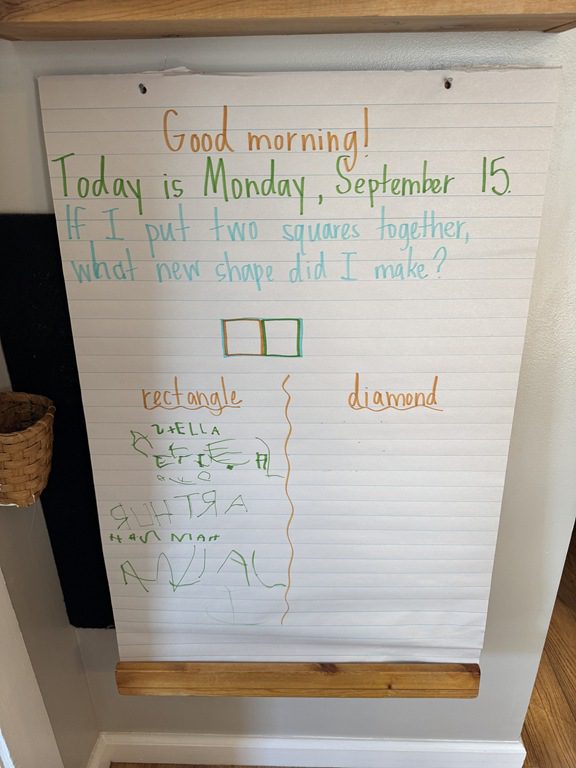 Good morning!
Today is Monday, September 15.
If I put two squares together,
what new shape did I make?
rectangle
diamond
STELLA
HANNAH